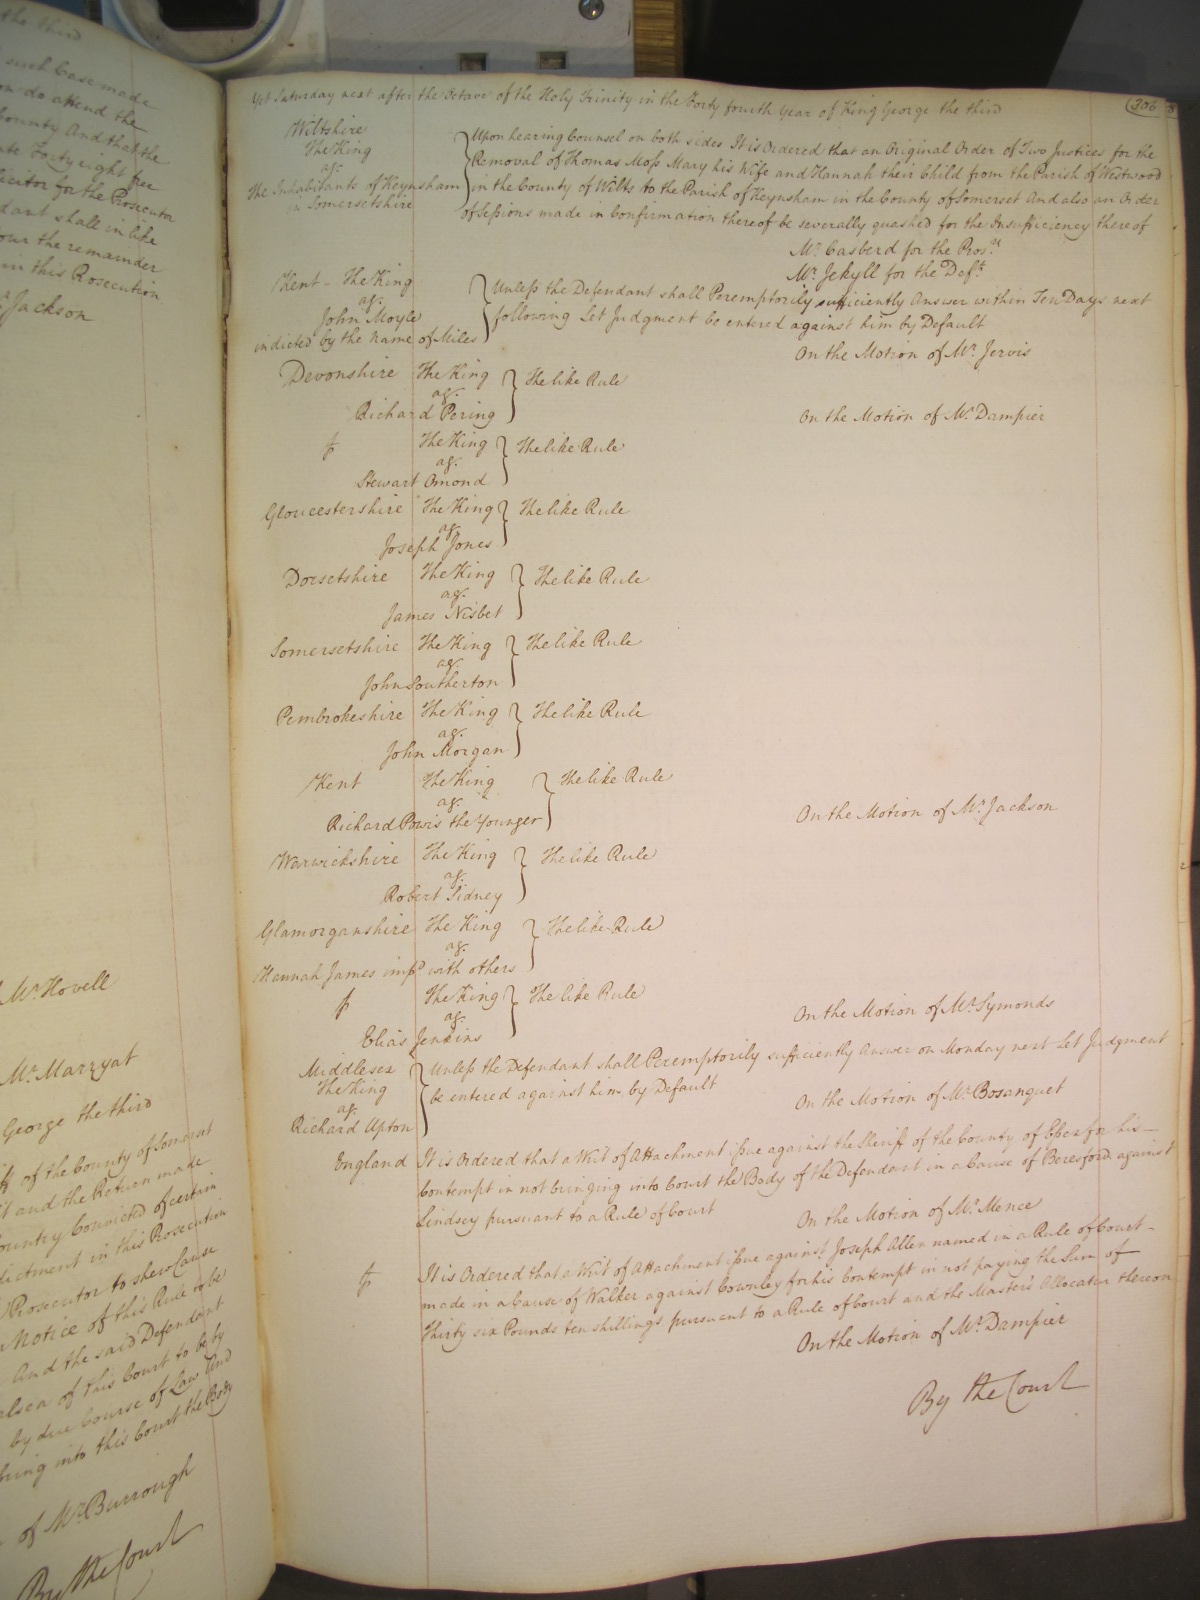 the third
such Case made
do attend the
County And that the
Forty eight free
for the Prosecutor
shall in like
the remainder
in this Prosecution
Jackson
Mr. Hovell
Mr. Marryat
George the third
of the County of Somerset
and the Return made
Country Convicted of certain
in this Prosecution
Prosecutor to shew Cause
Notice of this Rule to be
And the said Defendant
of this Court to be by
by due Course of Law And
bring into this Court the Body
of Mr. Burrough
By the Court
306
Yet Saturday next after the Octave of the Holy Trinity in the Forty fourth Year of King George the third
Wiltshire
The King
ag.
The Inhabitants of Keynsham
in Somersetshire
Upon hearing Counsel on both sides It is Ordered that an Original Order of Two Justices for the
Removal of Thomas Moss Mary his Wife and Hannah their Child from the Parish of Westwood
in the County of Wilts to the Parish of Keynsham in the County of Somerset And also an Order
of Sessions made in Confirmation thereof be severally quashed for the Insufficiency thereof
Mr. Casberd for the Prosr.
Mr. Jekyll for the Deft.
Kent - The King
ag.
John Moyle
indicted by the name of Miles
Unless the Defendant shall Peremptorily sufficiently Answer within Ten Days next
following Let Judgment be entered against him by Default
On the Motion of Mr. Jervis
Devonshire The King
ag.
Richard Pering
The like Rule
On the Motion of Mr. Dampier
The King
ag.
Stewart Omond
The like Rule
Gloucestershire The King
ag.
Joseph Jones
The like Rule
Dorsetshire The King
ag.
James Nisbet
The like Rule
Somersetshire The King
ag.
John Southerton
The like Rule
Pembrokeshire The King
ag.
John Morgan
The like Rule
Kent The King
ag.
Richard Powis the Younger
The like Rule
On the Motion of Mr. Jackson
Warwickshire The King
ag.
Robert Sidney
The like Rule
Glamorganshire The King
ag.
Hannah James impd with others
The like Rule
The King
ag.
Elias Jenkins
The like Rule
On the Motion of Mr. Symonds
Middlesex
The King
ag.
Richard Upton
Unless the Defendant shall Peremptorily sufficiently Answer on Monday next Let Judgment
be entered against him by Default
On the Motion of Mr. Bosanquet
England It is Ordered that a Writ of Attachment issue against the Sheriff of the County of Essex for his
Contempt in not bringing into Court the Body of the Defendant in a Cause of Beresford against
Lindsey pursuant to a Rule of Court
On the Motion of Mr. Mence
It is Ordered that a Writ of Attachment issue against Joseph Allen named in a Rule of Court
made in a Cause of Walker against Cownley for his Contempt in not paying the Sum of
Thirty six Pounds ten shillings pursuant to a Rule of Court and the Master's Allocatur thereon
On the Motion of Mr. Dampier
By the Court